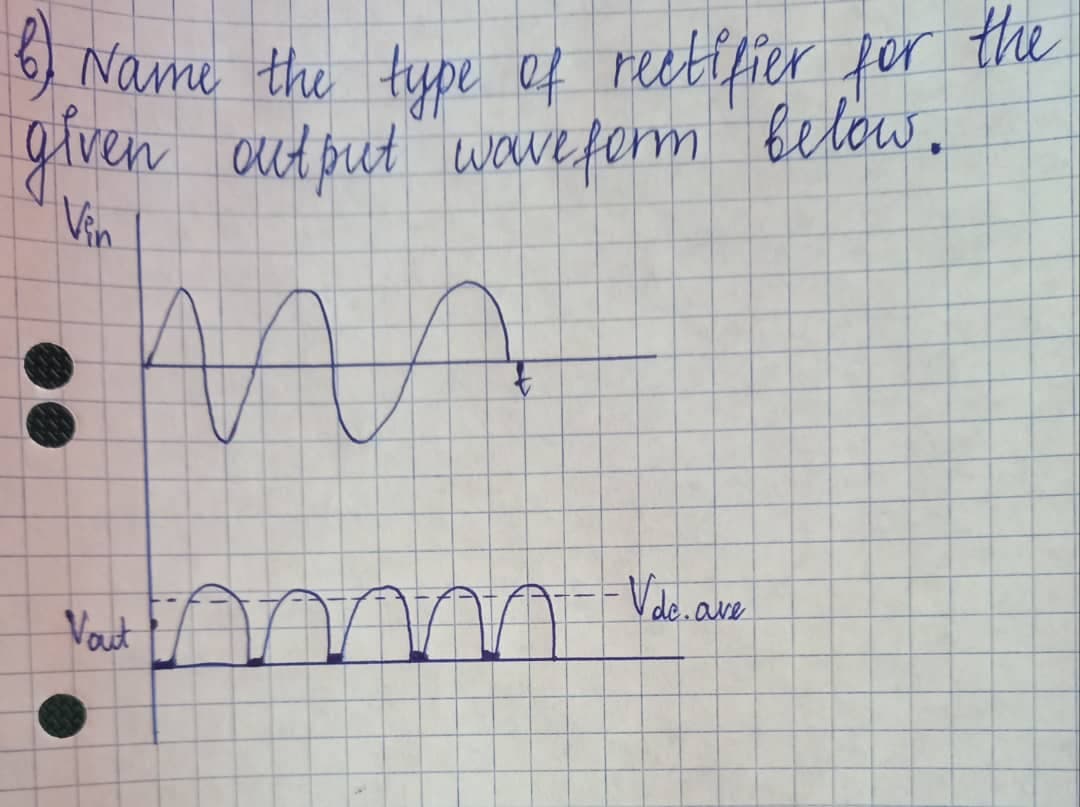 b) Name the type of rectifier for the
given output waveform below.
Vin
t
Vout
Vdc.ave